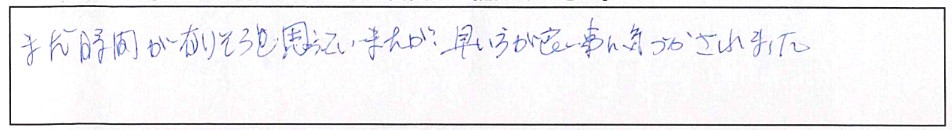 まだ時間が有りそうと思っていましたが、早い方が良い事に気づかされました